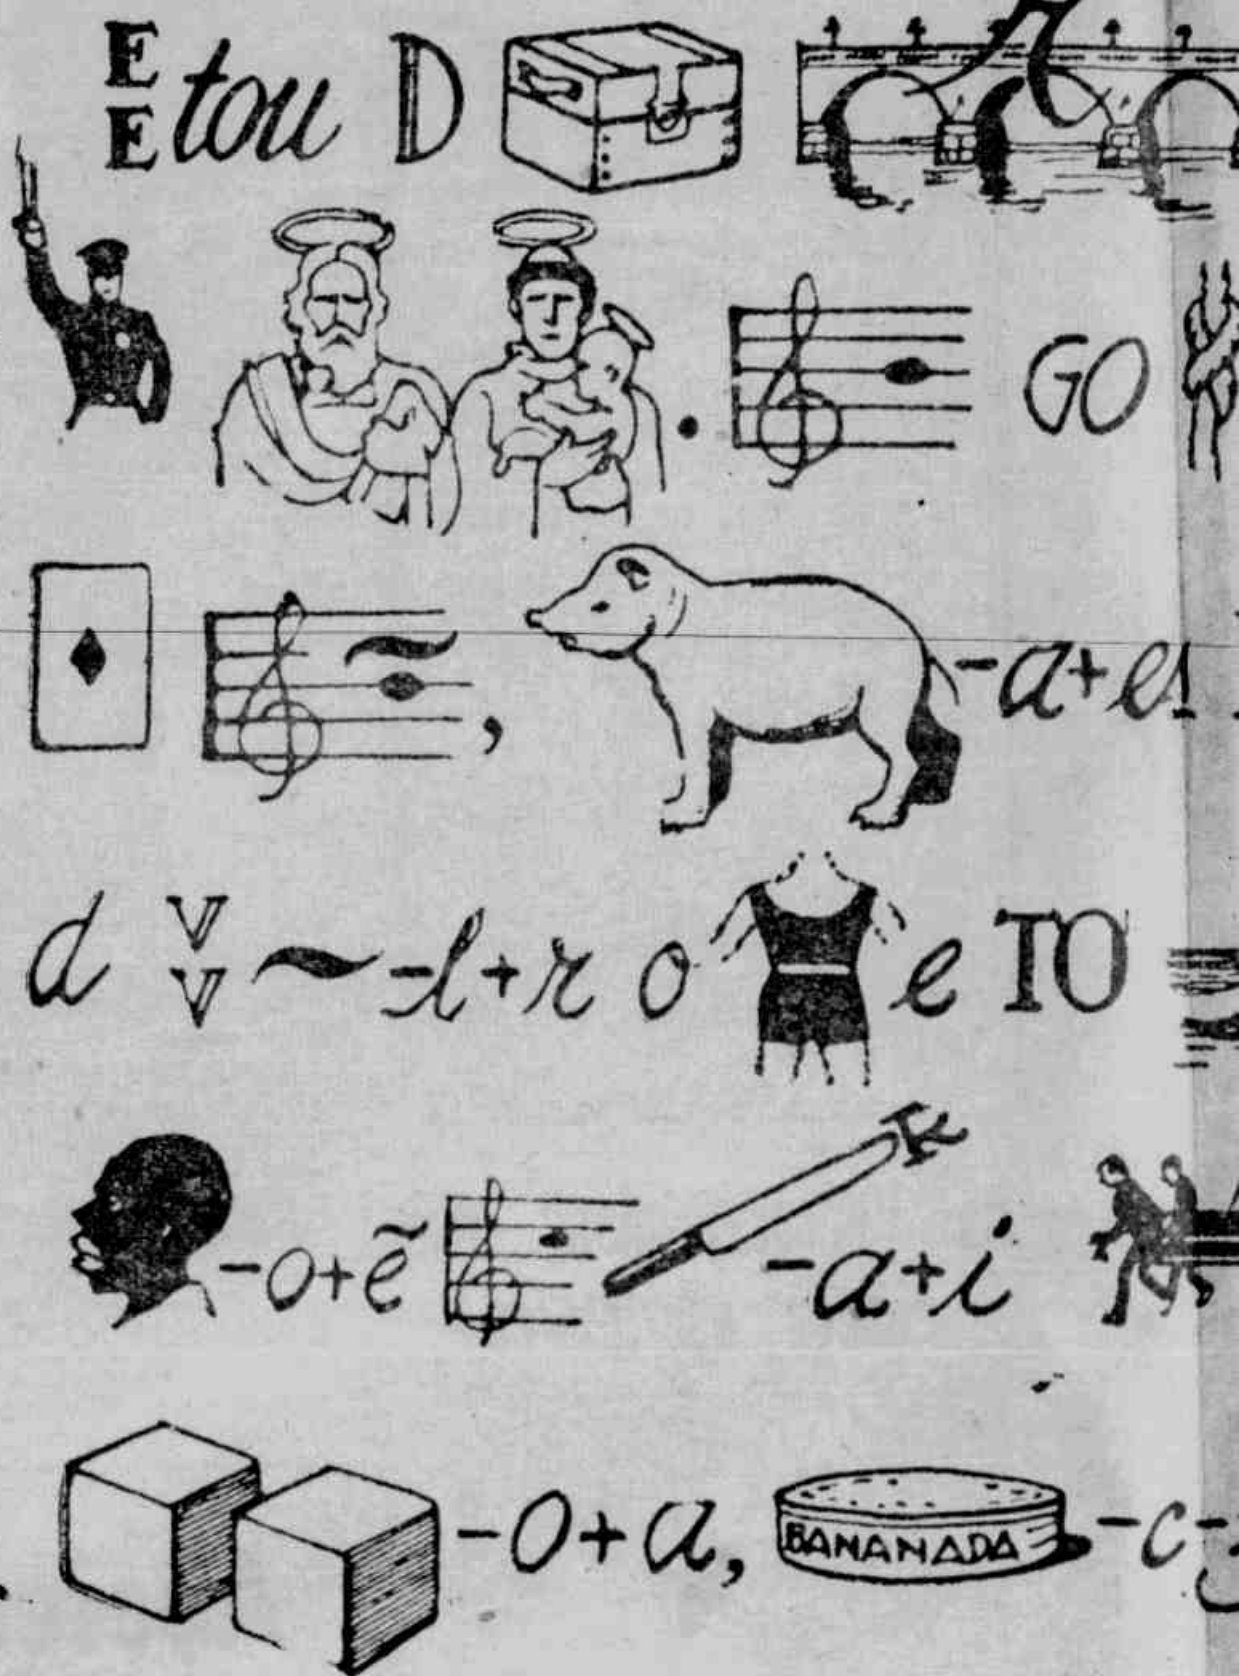 E
E tou D R
GO
, -a+es
d V
V ~ -l+r o e TO
-o+ẽ -a+i
-O+a, BANANADA -c